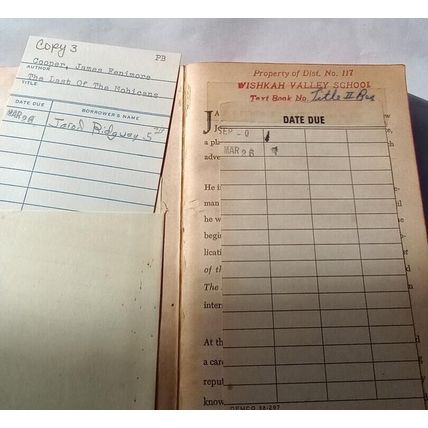 Copy 3
PB
Cooper, James Fenimore
AUTHOR
The Last Of The Mohicans
TITLE
DATE DUE
BORROWER'S NAME
MAR 26
Jarod Ridgway 5
Property of Dist. No. 117
WISHKAH VALLEY SCHOOL
Text Book No. Title II
DATE DUE
SEP
MAR 26
a pl
adve
He i
man
he w
begi
licat
of th
The
inter
At th
a car
reput
know
DEMCO 38-297